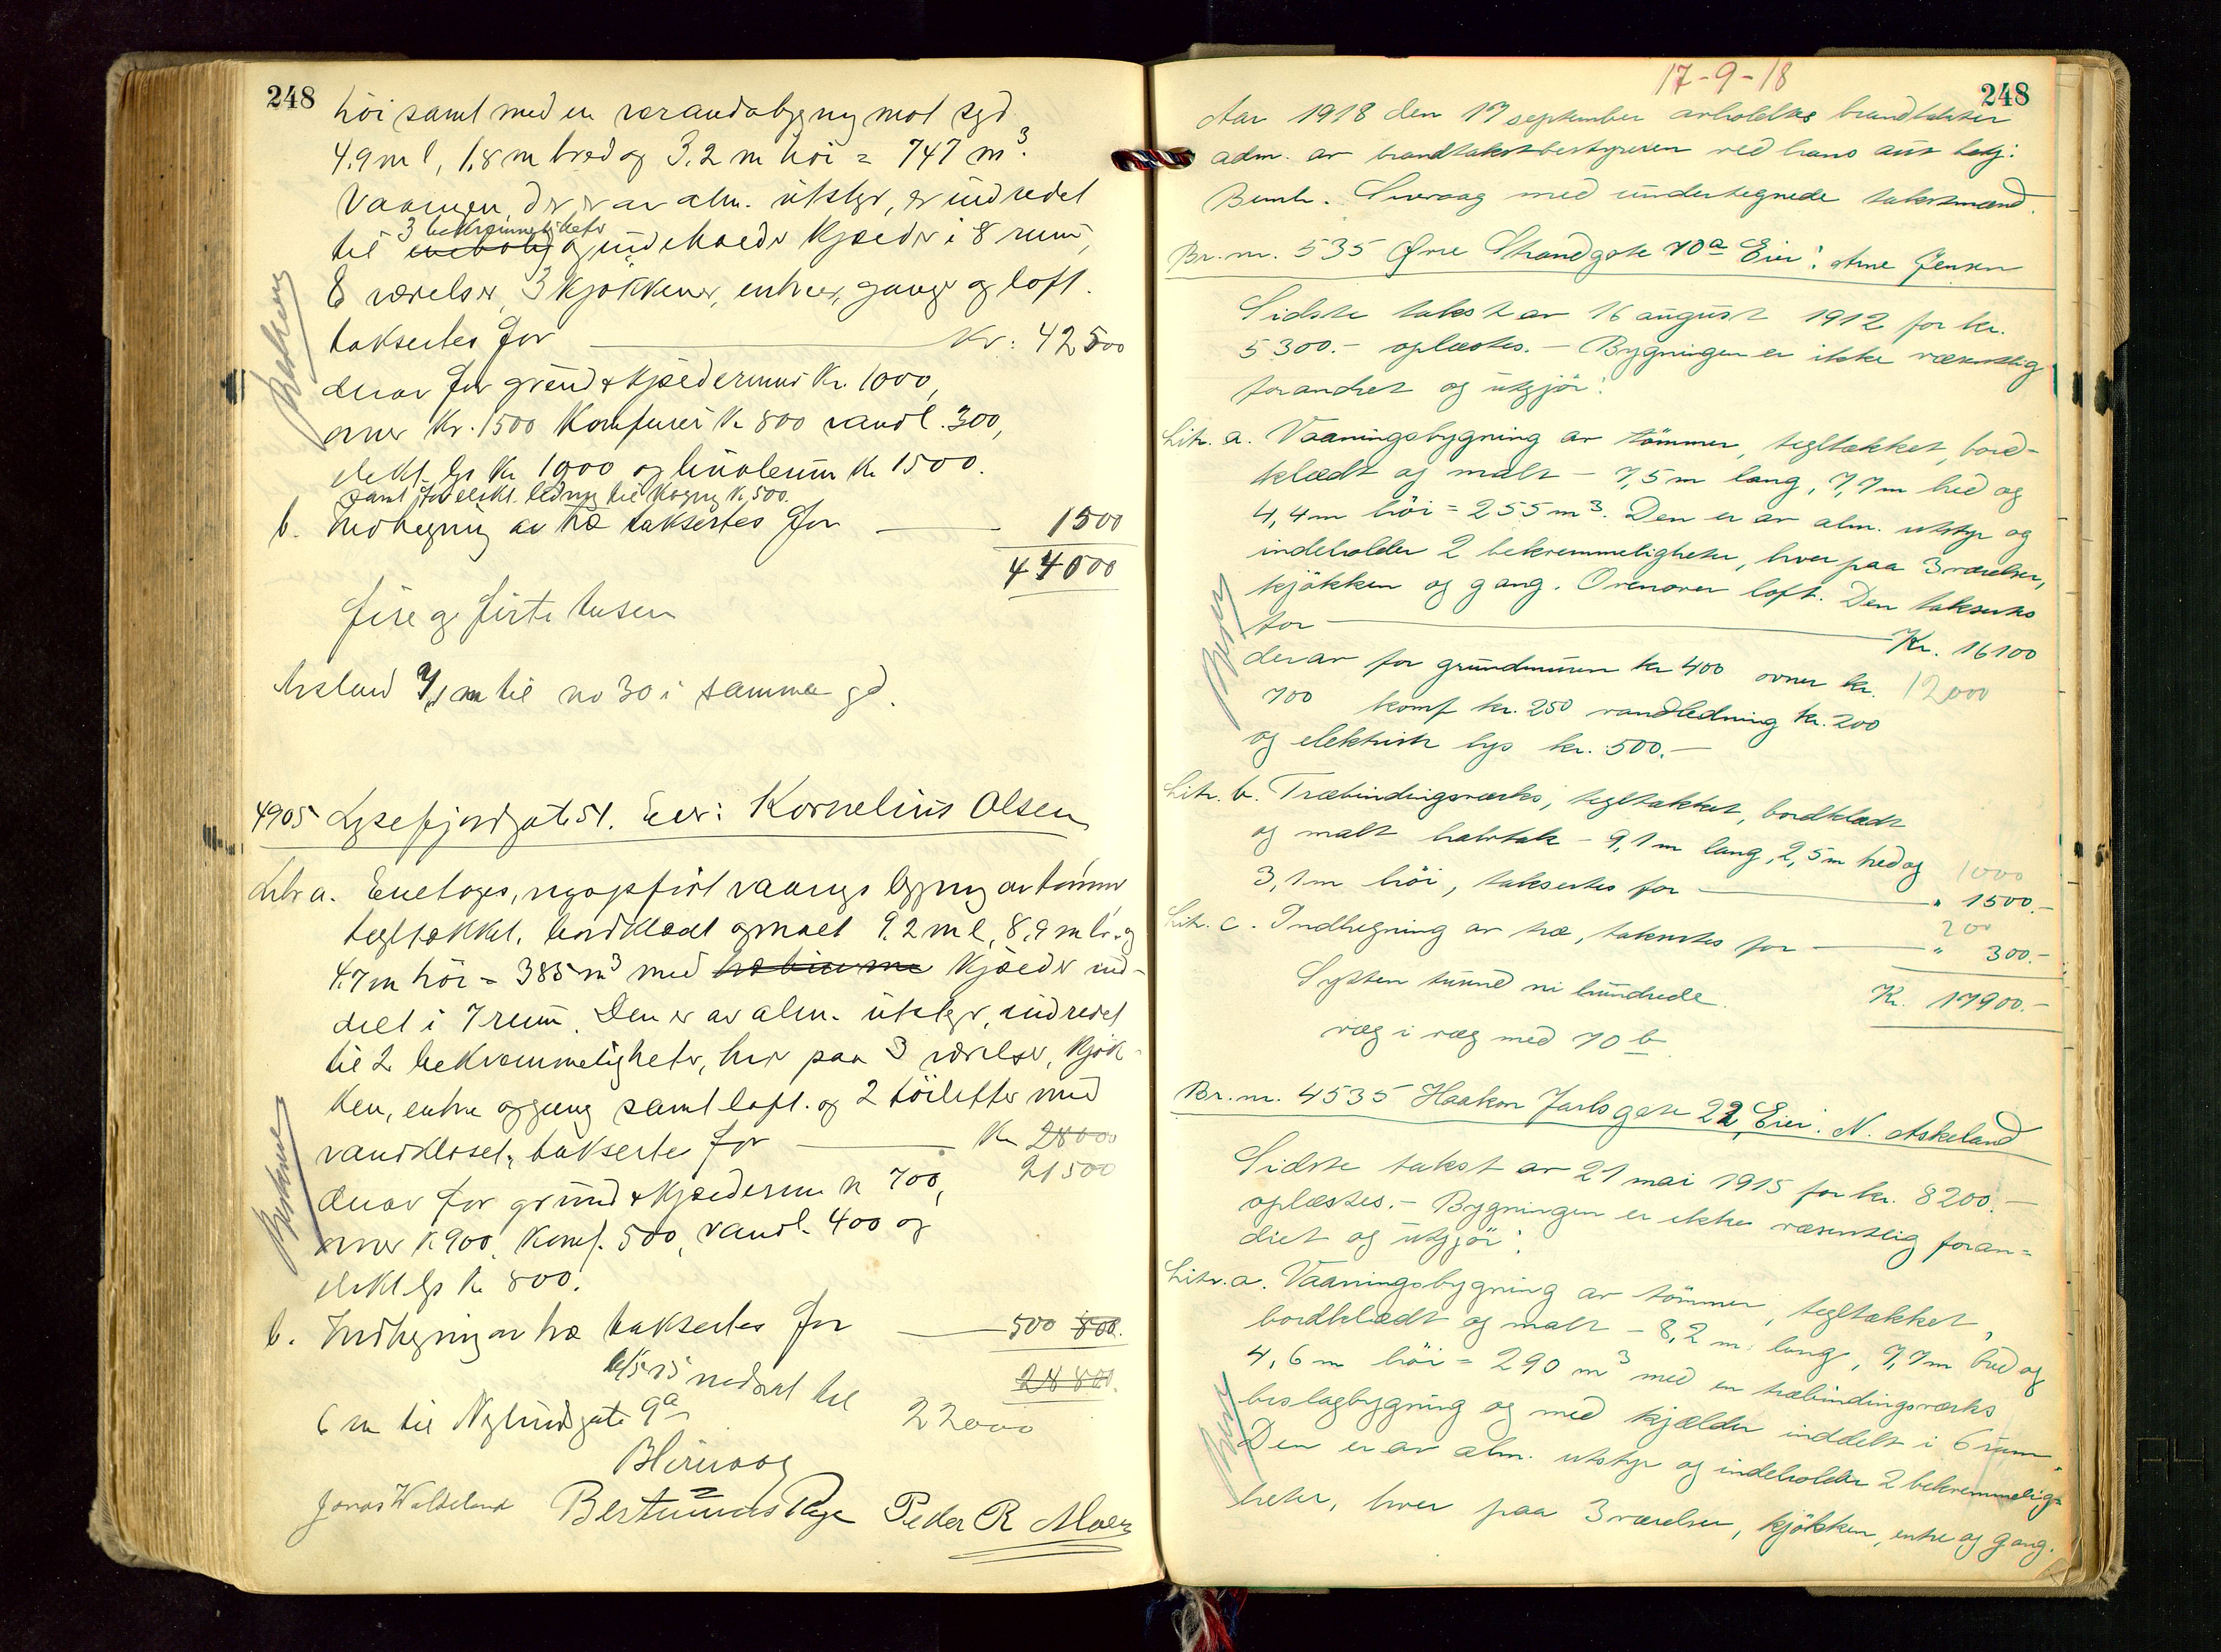 248
höi samt med en verandabygning mot syd
4.9 m l, 1,8 m bred og 3.2 m höi = 747 m³.
Vaaningen, der er av alm. utstyr, er indredet
3 bekvemmeligheter
til og indeholder kjælder i 8 rum,
8 værelser, 3 kjökkener, entreer, gange og loft.
taksertes for Kr: 42500
derav for grund & kjældermur Kr. 1000,
ovner Kr. 1500 Komfurer Kr 800 vandl. 300,
elekt. lys Kr 1000 og linoleum Kr 1500.
samt for elekt. ledning til kogning Kr. 500.
b. Indhegning av træ taksertes for 1500
44000
fire og firti tusen
Avstand 7,1 m til no 30 i samme gd.
4905 Lysefjordgate 51. Eier: Kornelius Olsen
Litr a. Enetages, nyopfört vaanings bygning av tömmer
tegltækket, bordklædt og malt 9.2 m l, 8,9 m br. og
4.7 m höi = 385 m³ med kjælder ind-
delt i 7 rum. Den er av alm. utstyr, indredet
til 2 bekvemmeligheter, hver paa 3 værelser, kjök-
ken, entre og gang samt loft. og 2 toiletter med
vandkloset, taksertes for Kr 28000
21500
derav for grund & kjældermur Kr 700,
ovner Kr 900, Komf. 500, vandl. 400 og
elekt lys Kr 800.
b. Indhegning av træ taksertes for 500 800.
28800.
nedsat til
6 m til Nylundsgate 9a 22000
B Hirevaag
Jonas Waldeland Bertinius Rege Peder R Aloer
17-9-18
248
Aar 1918 den 17 september avholdtes brandtakster
adm. av brandtakstbestyreren ved hans ass betj:
Bernh. Sirevaag med undertegnede takstmænd.
Br. nr. 535 Övre Strandgate 70a Eier: Arne Jensen
Sidste takst av 16 august 1912 for kr.
5300.- oplæstes. - Bygningen er ikke væsentlig
forandret og utgjör:
Litr. a. Vaaningsbygning av tömmer, tegltækket, bord-
klædt og malt - 7,5 m lang, 7,7 m bred og
4,4 m höi = 255 m³. Den er av alm. utstyr og
indeholder 2 bekvemmeligheter, hver paa 3 værelser,
kjökken og gang. Ovenover loft. Den taksertes
for Kr. 16100
derav for grundmuren kr 400 ovner kr. 12000
700 komf kr. 250 vandledning kr. 200
og elektrisk lys kr. 500.-
Litr. b. Træbindingsverks, tegltækket, bordklædt
og malt halvtak - 9,1 m lang, 2,5 m bred og 1000
3,1 m höi, taksertes for " 1500.-
200
Litr. c. Indhegning av træ, taksertes for " 300.-
Sytten tusind ni hundrede. Kr. 17900.-
væg i væg med 70 b
Br. nr. 4535 Haakon Jarls gate 22, Eier: N. Askeland
Sidste takst av 21 mai 1915 for kr. 8200.-
oplæstes. - Bygningen er ikke væsentlig foran=
dret og utgjör:
Litr. a. Vaaningsbygning av tömmer, tegltækket,
bordklædt og malt - 8,2 m lang, 7,7 m bred og
4,6 m höi = 290 m³ med en træbindingsværks
bislagbygning og med kjælder inddelt i 6 rum.
Den er av alm. utstyr og indeholder 2 bekvemmelig=
heter, hver paa 3 værelser, kjökken, entre og gang.